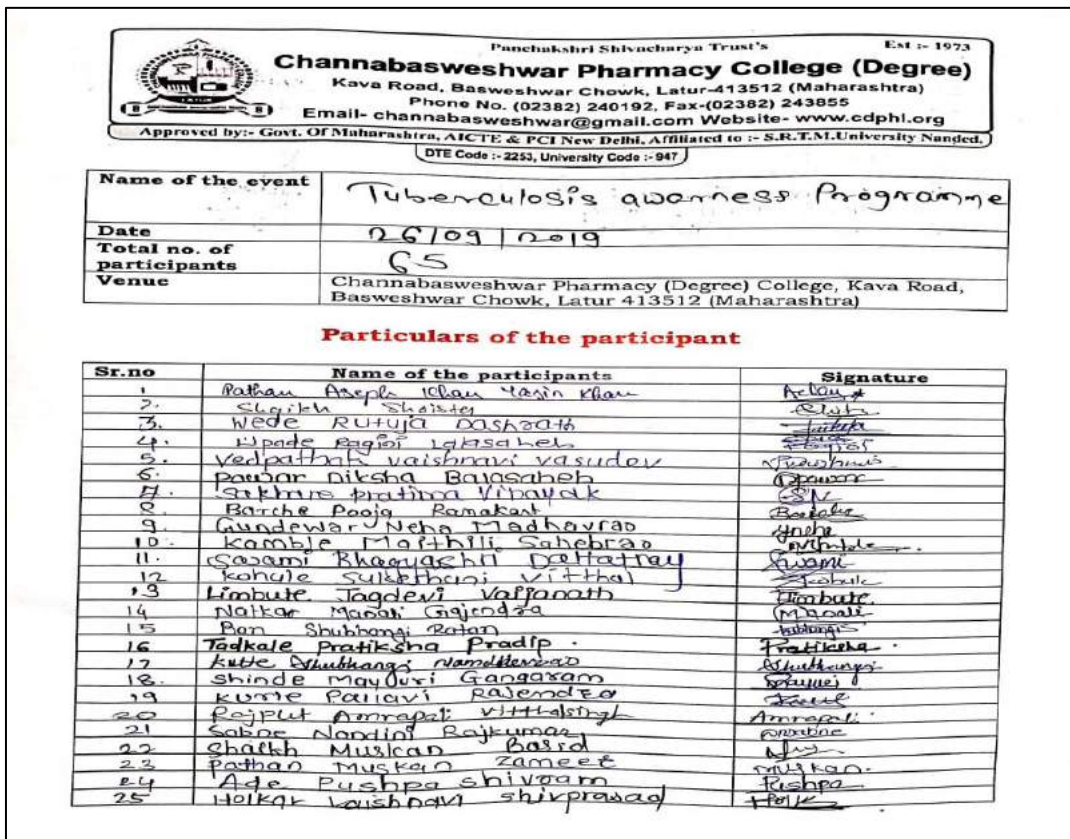 Panchakshri Shivacharya Trust's Est :- 1973
Channabasweshwar Pharmacy College (Degree)
Kava Road, Basweshwar Chowk, Latur-413512 (Maharashtra)
Phone No. (02382) 240192, Fax-(02382) 243855
Email- channabasweshwar@gmail.com Website- www.cdphl.org
Approved by:- Govt. Of Maharashtra, AICTE & PCI New Delhi, Affiliated to :- S.R.T.M.University Nanded.
DTE Code :- 2253, University Code :- 947
Name of the event Tuberculosis awarness Programme
Date 26/09/2019
Total no. of participants 65
Venue Channabasweshwar Pharmacy (Degree) College, Kava Road,
Basweshwar Chowk, Latur 413512 (Maharashtra)
Particulars of the participant
Sr.no Name of the participants Signature
1 Pathan Aseph Khan Yasin Khan
2. Shaikh Shaista
3. Wede Rutuja Dashrath
4. Ragini
5. Vedpathak vaishnavi vasudev
6. pawar Diksha Balasaheb Dpawar
7. Sakhare pratima Vinayak
8. Barche Pooja Ramakant
9. Gundewar Neha Madhavrao
10. Kamble Maithili Sahebrao
11. Swami Bhagyashri Dattatray Swami
12 Kohule vitthal
13 Limbute Jagdevi Vaijanath Limbute
14 Natkar Manali Gajendra Manali
15 Ban Shubhangi Ratan
16 Tadkale Pratiksha Pradip. Pratiksha.
17 Kutte Shubhangi Shubhangi
18. Shinde Mayuri Gangaram
19 Kume Pallavi Rajendra
20 Rajput Amrapali vitthalsingh Amrapali.
21 Sabne Nandini Rajkumar
22 Shaikh Muskan Basid
23 Pathan Muskan Zameer Muskan.
24 Ade Pushpa shivram Pushpa
25 Holkar Vaishnavi shivprasad